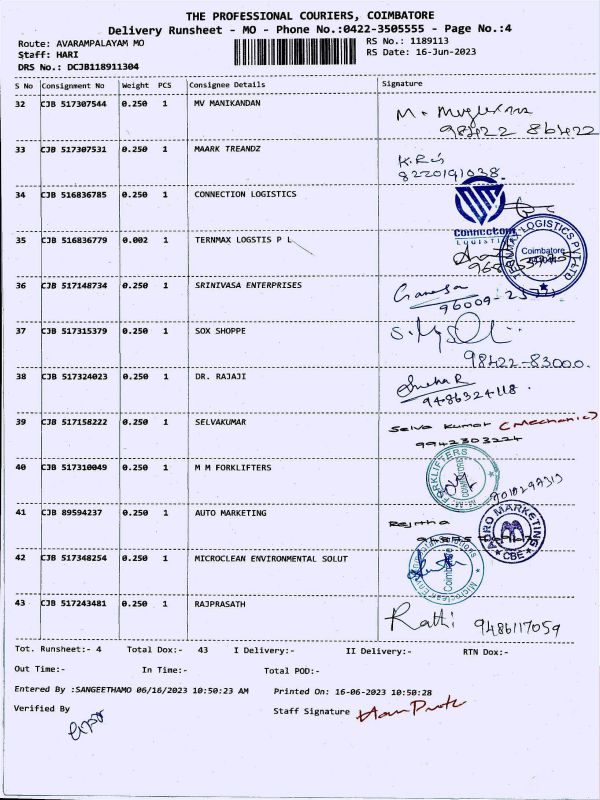 THE PROFESSIONAL COURIERS, COIMBATORE
Delivery Runsheet - MO - Phone No.:0422-3505555 - Page No.:4
Route: AVARAMPALAYAM MO RS No.: 1189113
Staff: HARI RS Date: 16-Jun-2023
DRS No.: DCJB118911304
S No Consignment No Weight PCS Consignee Details Signature
32 CJB 517307544 0.250 1 MV MANIKANDAN
98422 86422
33 CJB 517307531 0.250 1 MAARK TREANDZ
8220191038.
34 CJB 516836785 0.250 1 CONNECTION LOGISTICS
CONNECTION
Logistics
35 CJB 516836779 0.002 1 TERNMAX LOGSTIS P L
TERNMAX LOGISTICS PVT LTD
Coimbatore
36 CJB 517148734 0.250 1 SRINIVASA ENTERPRISES
Ganesa
37 CJB 517315379 0.250 1 SOX SHOPPE
98422-83000.
38 CJB 517324023 0.250 1 DR. RAJAJI
Sneha R
9486324118.
39 CJB 517158222 0.250 1 SELVAKUMAR
Selva Kumar (Mechanic)
9942303224
40 CJB 517310049 0.250 1 M M FORKLIFTERS
M.M. FORKLIFTERS
41 CJB 89594237 0.250 1 AUTO MARKETING
MARKETING
CBE
42 CJB 517348254 0.250 1 MICROCLEAN ENVIRONMENTAL SOLUT
Coimbatore
43 CJB 517243481 0.250 1 RAJPRASATH
Rathi 9486117059
Tot. Runsheet:- 4 Total Dox:- 43 I Delivery:- II Delivery:- RTN Dox:-
Out Time:- In Time:- Total POD:-
Entered By :SANGEETHAMO 06/16/2023 10:50:23 AM Printed On: 16-06-2023 10:50:28
Verified By Staff Signature